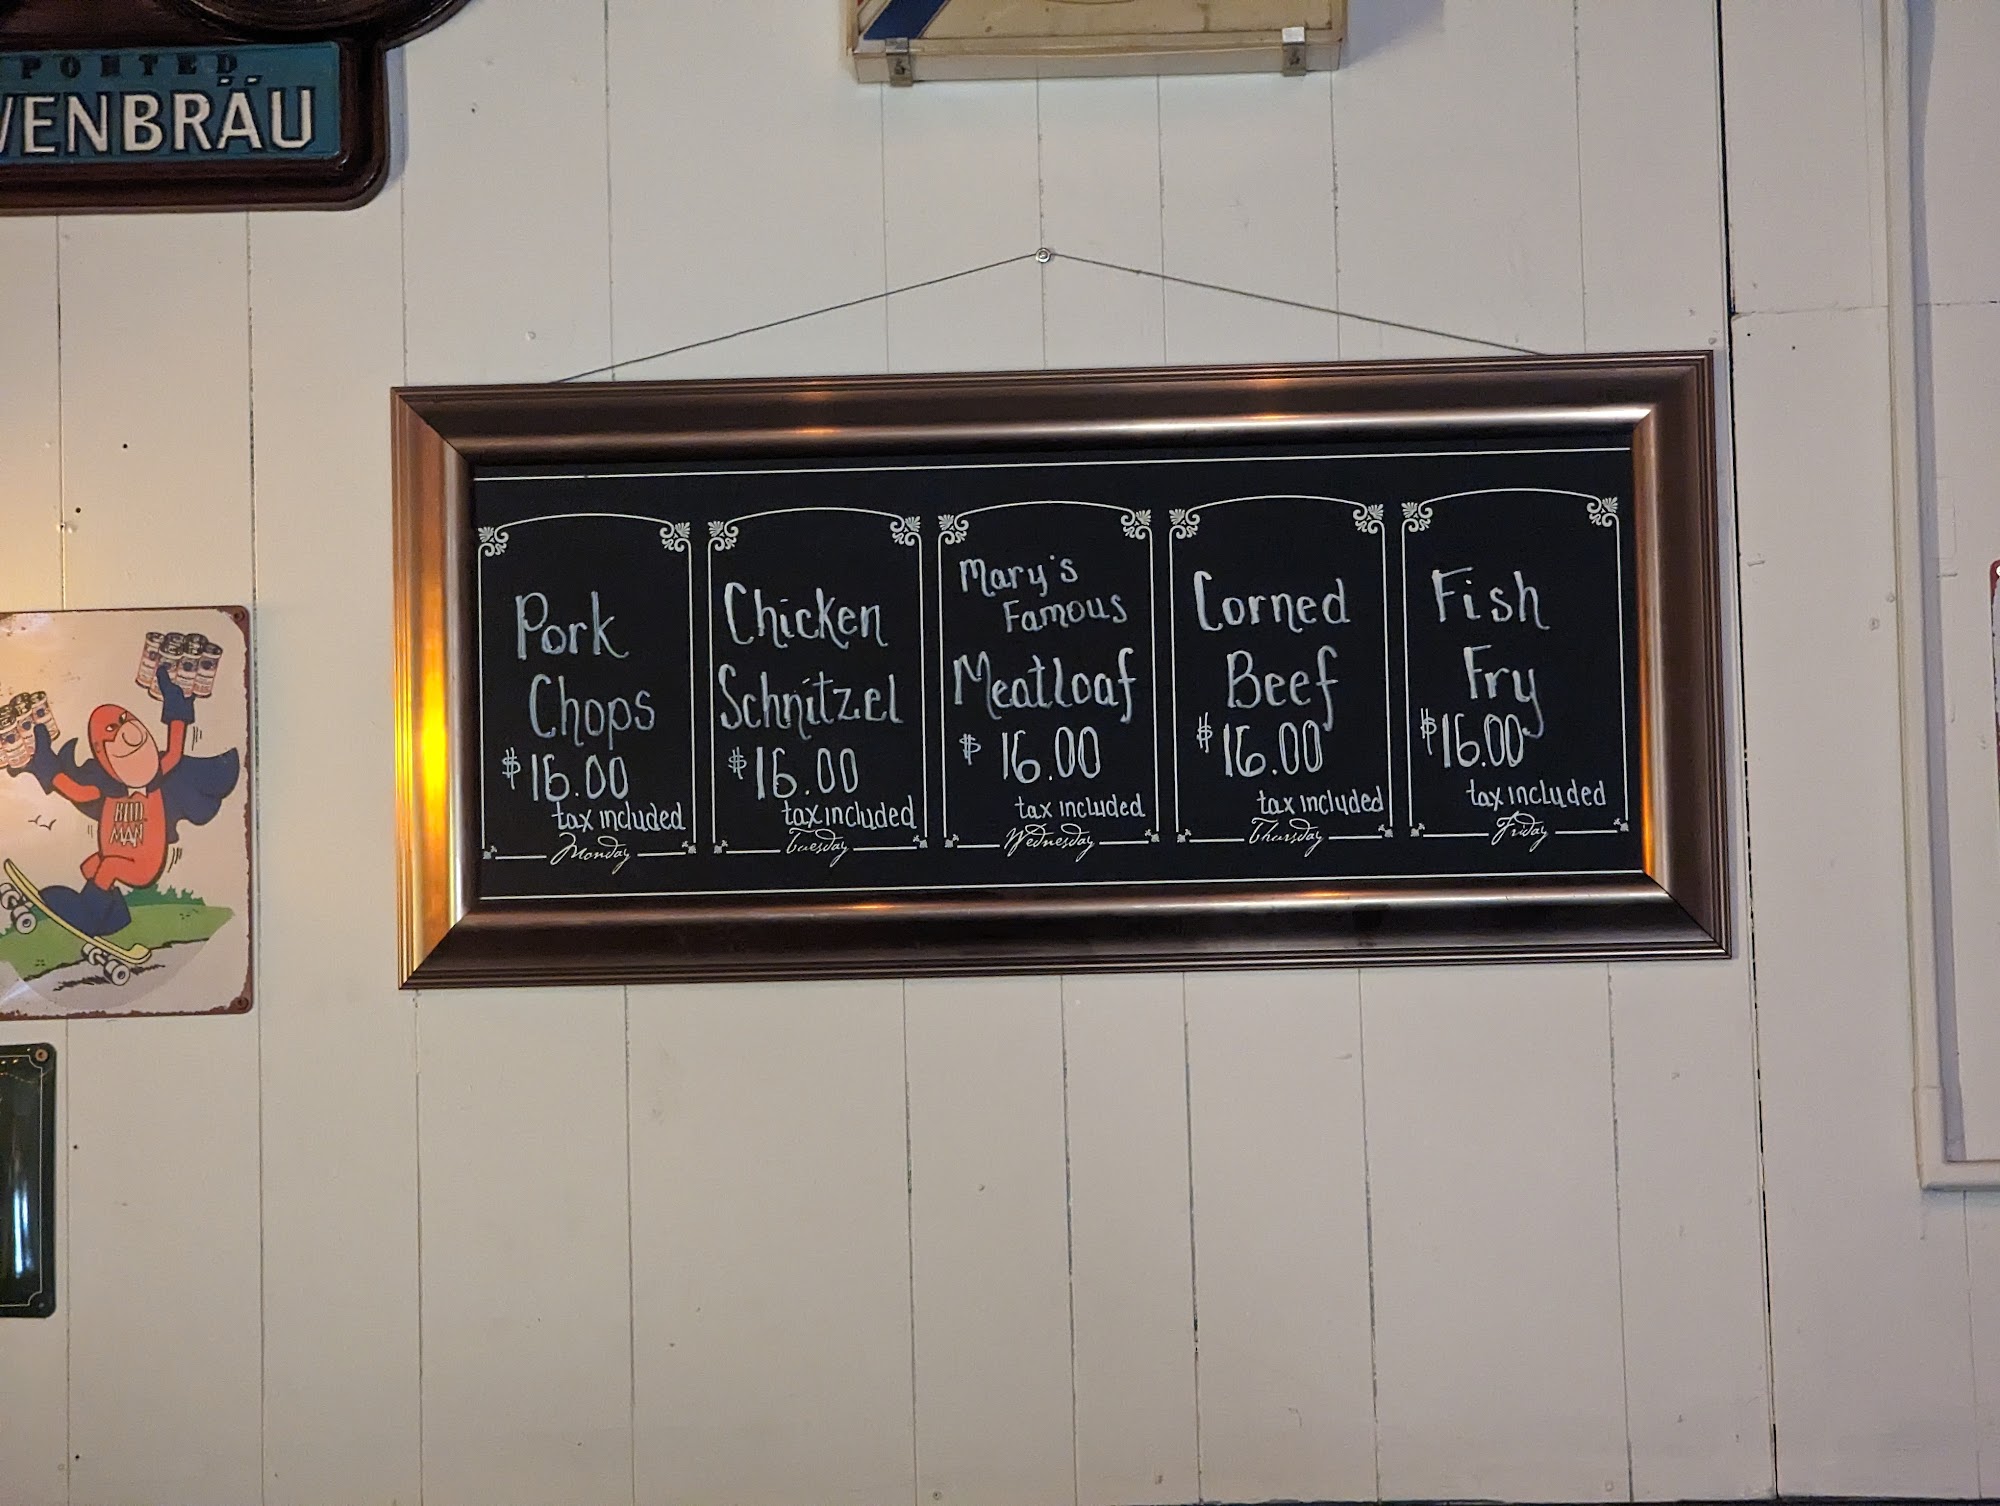 PORTED
VENBRÄU
Pork
Chops
$16.00
tax included
Monday
Chicken
Schnitzel
$16.00
tax included
Tuesday
Mary's
Famous
Meatloaf
$16.00
tax included
Wednesday
Corned
Beef
$16.00
tax included
Thursday
Fish
Fry
$16.00
tax included
Friday
MAN